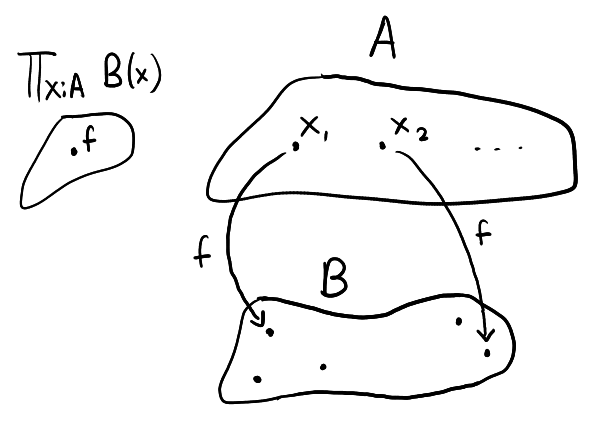 A
∏x:A B(x)
f
x₁ x₂ ....
f f
B